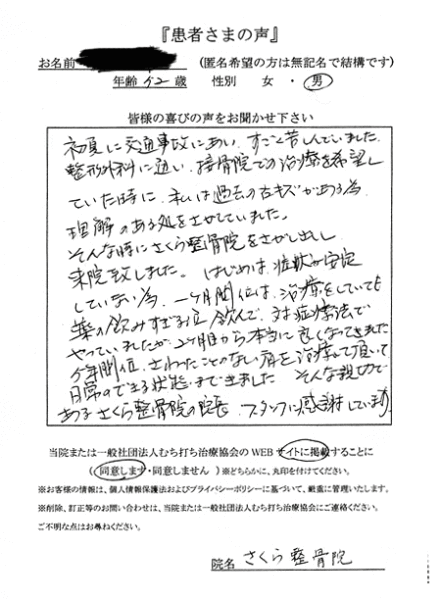 『患者さまの声』
お名前 (匿名希望の方は無記名で結構です)
年齢 52 歳 性別 女 ・ 男
皆様の喜びの声をお聞かせ下さい
初夏に交通事故にあい、すごく苦しんでいました。
整形外科に通い、接骨院での治療を希望し
ていた時に、私は過去の古キズがある為、
理解のある処をさがしていました。
そんな時にさくら整骨院をさがし出し
来院致しました。はじめは、症状が安定
していない為、一ヶ月間位は、治療をしていても
薬の飲みすぎる位飲んで、対症療法で
やっていましたが、2ヶ月目から本当に良くなってきました
位、さわったことのない所を治療して頂いて
日常のできる状態まできました そんな親切で
あるさくら整骨院の院長、スタッフに感謝しています
当院または一般社団法人むち打ち治療協会の WEB サイトに掲載することに
( 同意します・同意しません ) ※どちらかに、丸印を付けてください。
※お客様の情報は、個人情報保護法およびプライバシーポリシーに基づいて、厳重に管理いたします。
※削除、訂正等のお問い合わせは、当院または一般社団法人むち打ち治療協会にご連絡ください。
ご不明な点はお尋ねください。
院名 さくら整骨院